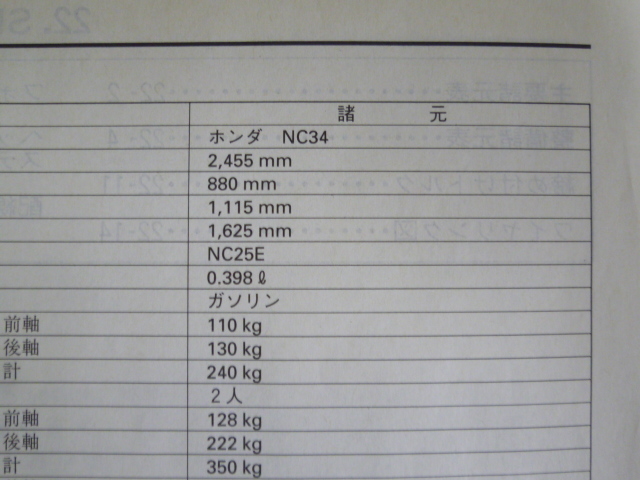 諸 元
ホンダ NC34
2,455 mm
880 mm
1,115 mm
1,625 mm
NC25E
0.398 ℓ
ガソリン
前軸 110 kg
後軸 130 kg
計 240 kg
2人
前軸 128 kg
後軸 222 kg
計 350 kg